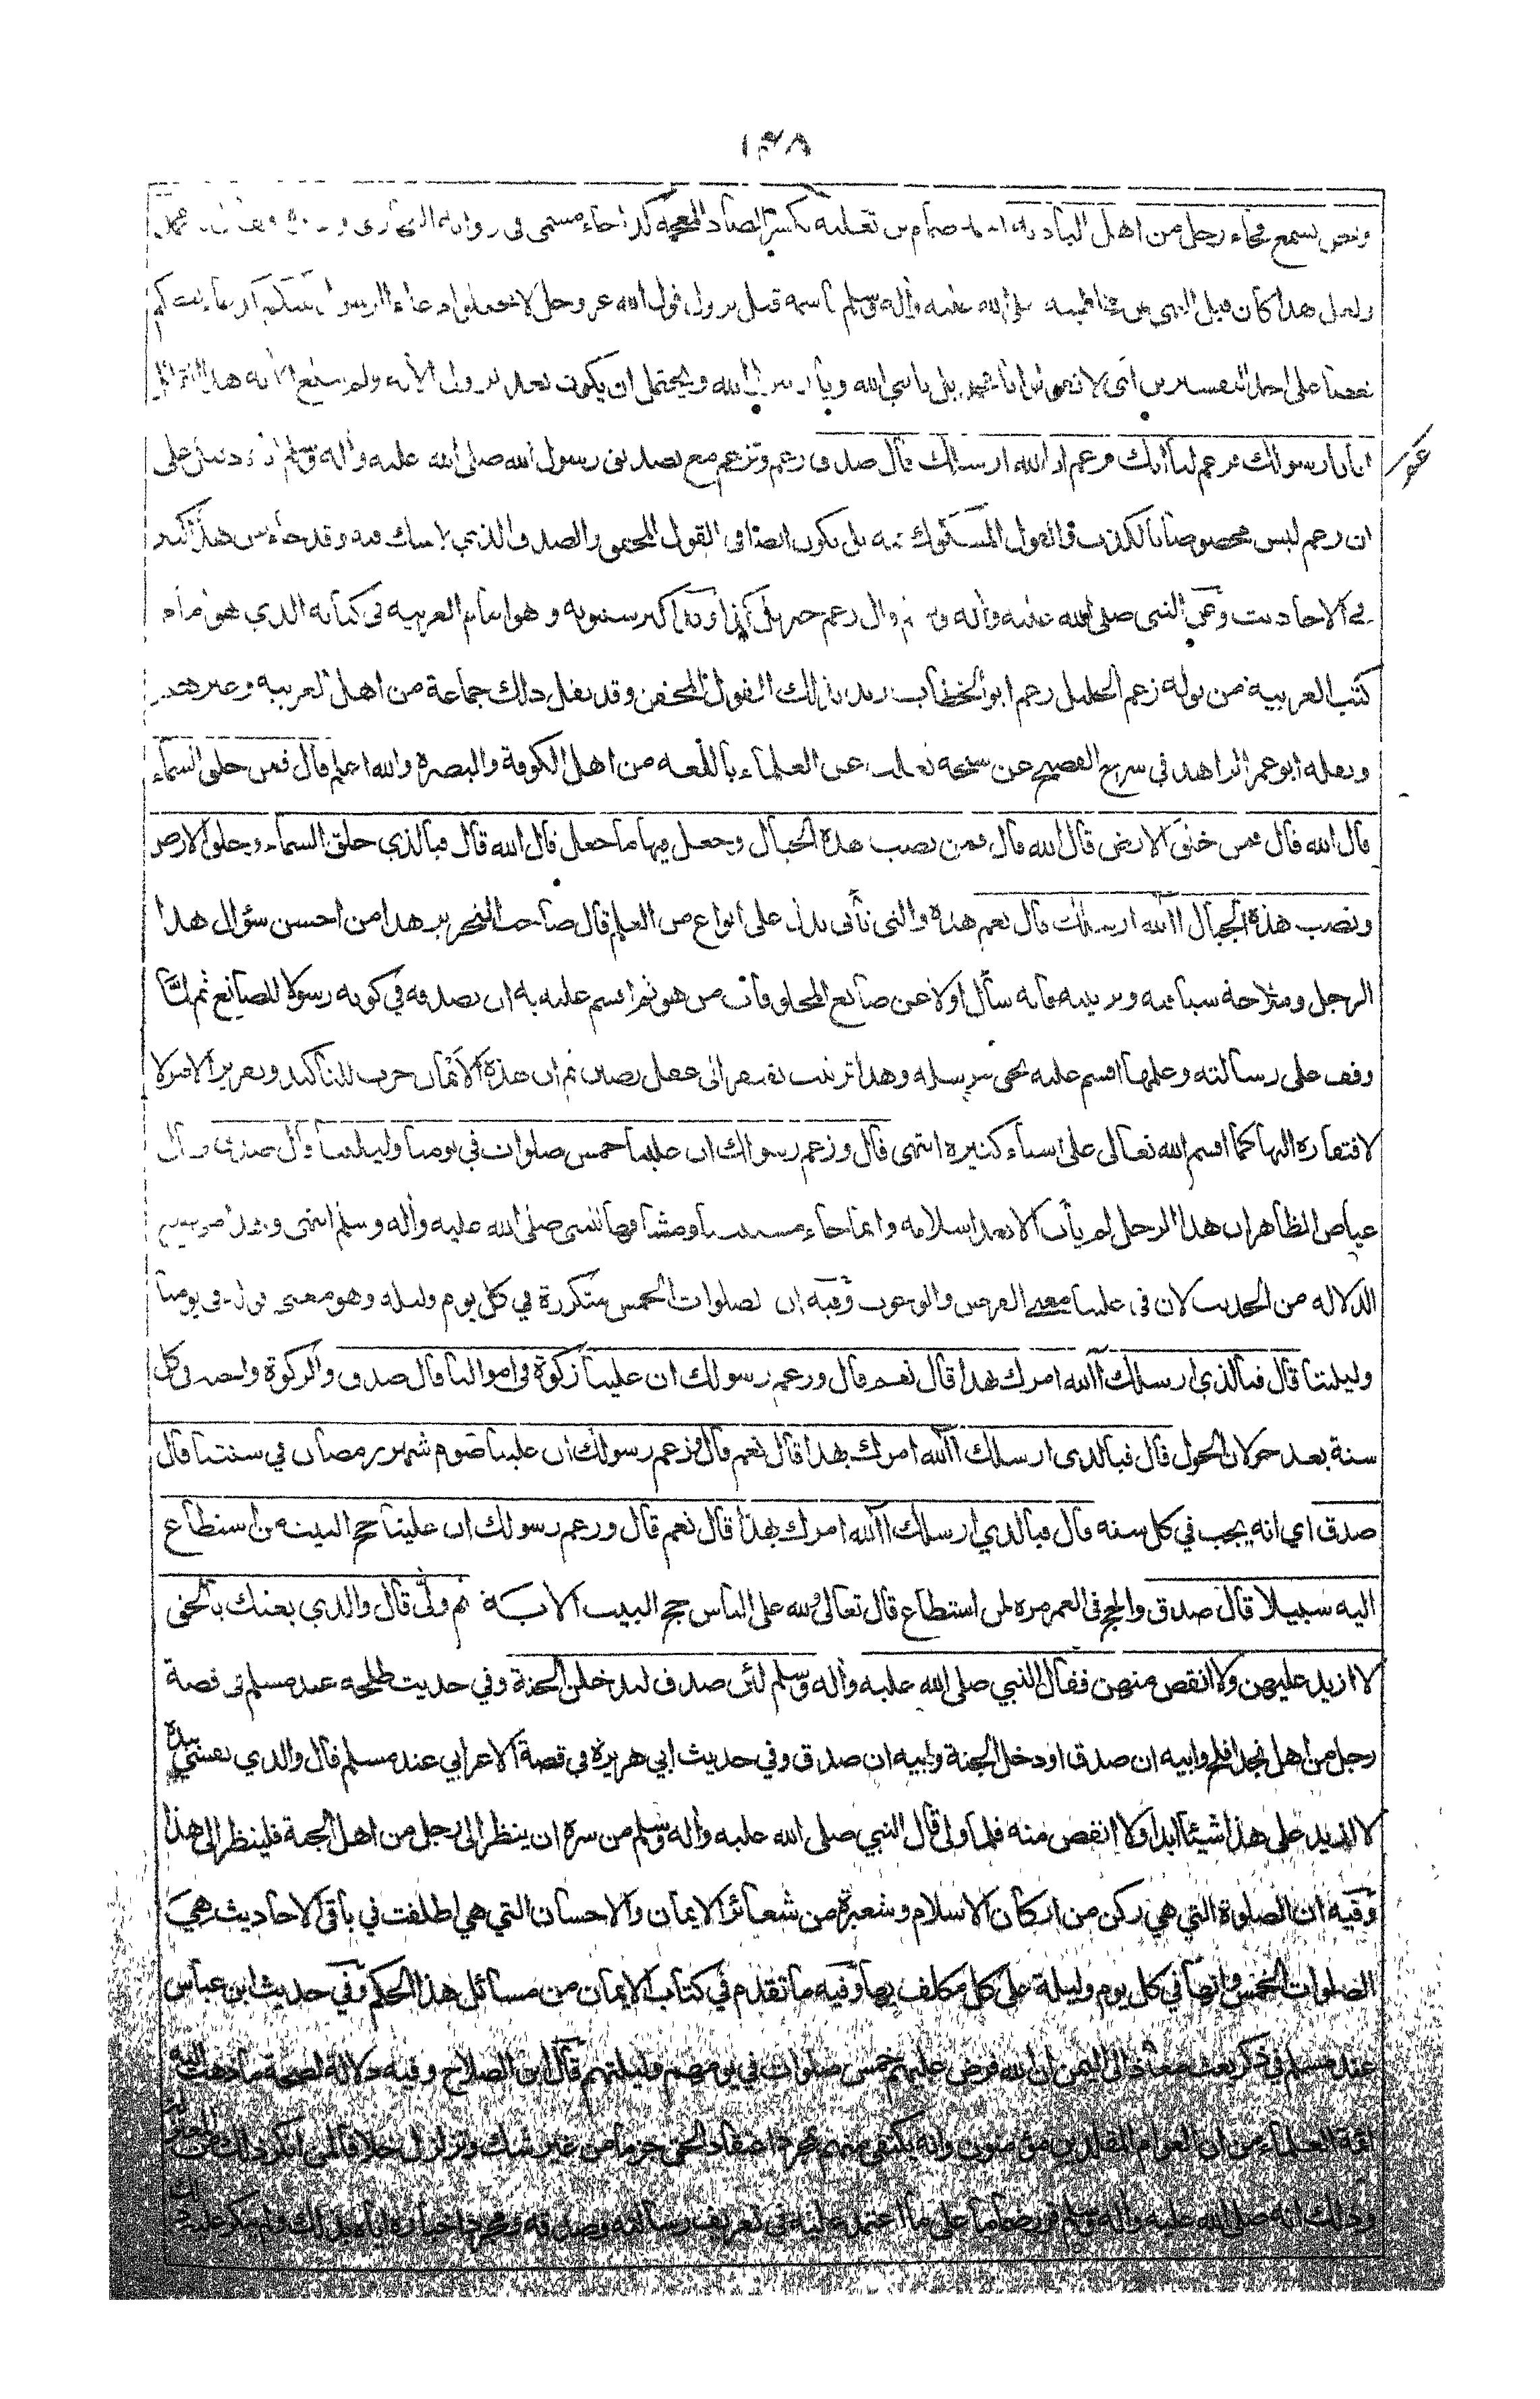 ١٣٨
ونحن نسمع فجاء رجل من اهل البادية ضمام بن ثعلبة بكسر الضاد المعجمة كذا جاء مسمى في رواية البخاري
ولعل هذا كان قبل النهي عن مخاطبته صلى الله عليه وأله وسلم باسمه قبل نزول قول الله عز وجل لا تجعلوا دعاء الرسول بينكم كدعاء بعضكم
بعضا على احد التفسيرين اي لا تقولوا يا محمد بل يا نبي الله ويا رسول الله ويحتمل ان يكون بعد نزول الأية ولم تبلغ الأية هذا القائل
اتانا رسولك فزعم لنا انك تزعم ان الله ارسلك قال صدق زعم وتزعم مع تصديق رسول الله صلى الله عليه وأله وسلم دليل على
ان زعم ليس مخصوصا بالكذب والقول المشكوك فيه بل يكون ايضا في القول المحقق والصدق الذي لا شك فيه وقد جاء من هذا كثير
في الاحاديث وعن النبي صلى الله عليه وأله قال زعم جبريل كذا وقد اكثر سيبويه وهو امام العربية في كتابه الذي هو امام
كتب العربية من قوله زعم الخليل زعم ابو الخطاب يريد بذلك القول المحقق وقد نقل ذلك جماعة من اهل العربية وغيرهم
ونقله ابو عمر الزاهد في شرح الفصيح عن شيخه ثعلب عن العلماء باللغة من اهل الكوفة والبصرة والله اعلم قال فمن خلق السماء
قال الله قال فمن خلق الارض قال الله قال فمن نصب هذه الجبال وجعل فيها ما جعل قال الله قال فبالذي خلق السماء وخلق الارض
ونصب هذه الجبال أالله ارسلك قال نعم هذه والتي تأتي تدل على انواع من العلم قال صاحب التحرير هذا من احسن سؤال هذا
الرجل وملاحة سياقته وترتيبه فانه سأل اولا عن صانع المخلوقات من هو ثم اقسم عليه به ان يصدقه في كونه رسولا للصانع ثم لما
وقف على رسالته وعلمها اقسم عليه بحق مرسله وهذا ترتيب يفتقر الى عقل رصين ثم ان هذه الأيمان جرت للتأكيد وتقرير الامر لا
لافتقاره اليها كما اقسم الله تعالى على اشياء كثيرة انتهى قال وزعم رسولك ان علينا خمس صلوات في يومنا وليلتنا قال صدق قال
عياض الظاهر ان هذا الرجل لم يأت الا بعد اسلامه وانما جاء مستثبتا ومشافها للنبي صلى الله عليه وأله وسلم انتهى
الدلالة من الحديث لان في علينا معنى الفرض والوجوب وفيه ان الصلوات الخمس متكررة في كل يوم وليلة وهو معنى قوله في يومنا
وليلتنا قال فبالذي ارسلك أالله امرك بهذا قال نعم قال وزعم رسولك ان علينا زكوة في اموالنا قال صدق والزكوة واجبة في كل
سنة بعد حولان الحول قال فبالذي ارسلك أالله امرك بهذا قال نعم قال وزعم رسولك ان علينا صوم شهر رمضان في سنتنا قال
صدق اي انه يجب في كل سنة قال فبالذي ارسلك أالله امرك بهذا قال نعم قال وزعم رسولك ان علينا حج البيت من استطاع
اليه سبيلا قال صدق والحج في العمر مرة لمن استطاع قال تعالى ولله على الناس حج البيت الأية ثم ولى قال والذي بعثك بالحق
لا ازيد عليهن ولا انقص منهن فقال النبي صلى الله عليه وأله وسلم لئن صدق ليدخلن الجنة وفي حديث طلحة عند مسلم في قصة
رجل من اهل نجد افلح وابيه ان صدق او دخل الجنة وابيه ان صدق وفي حديث ابي هريرة في قصة الاعرابي عند مسلم قال والذي نفسي بيده
لا ازيد على هذا شيئا ابدا ولا انقص منه فلما ولى قال النبي صلى الله عليه وأله وسلم من سره ان ينظر الى رجل من اهل الجنة فلينظر الى هذا
وفيه ان الصلوة التي هي ركن من اركان الاسلام وشعبة من شعائر الايمان والاحسان التي هي اطلقت في باقي الاحاديث هي
الصلوات الخمس وانها في كل يوم وليلة على كل مكلف بها وفيه ما تقدم في كتاب الايمان من مسائل هذا الحكم وفي حديث ابن عباس
عند مسلم في ذكر بعث معاذ الى اليمن ان الله فرض عليهم خمس صلوات في يومهم وليلتهم قال ابن الصلاح وفيه دلالة لصحة ما ذهب اليه
ائمة العلماء من ان العوام المقلدين مؤمنون وانه يكتفى منهم بمجرد اعتقاد الحق جزما من غير شك وتزلزل خلافا لمن انكر ذلك من المعتزلة
وذلك انه صلى الله عليه وأله وسلم قرر ضماما على ما اعتمد عليه في تعريف رسالته وصدقه ومجرد اخباره اياه بذلك ولم ينكر عليه ذلك